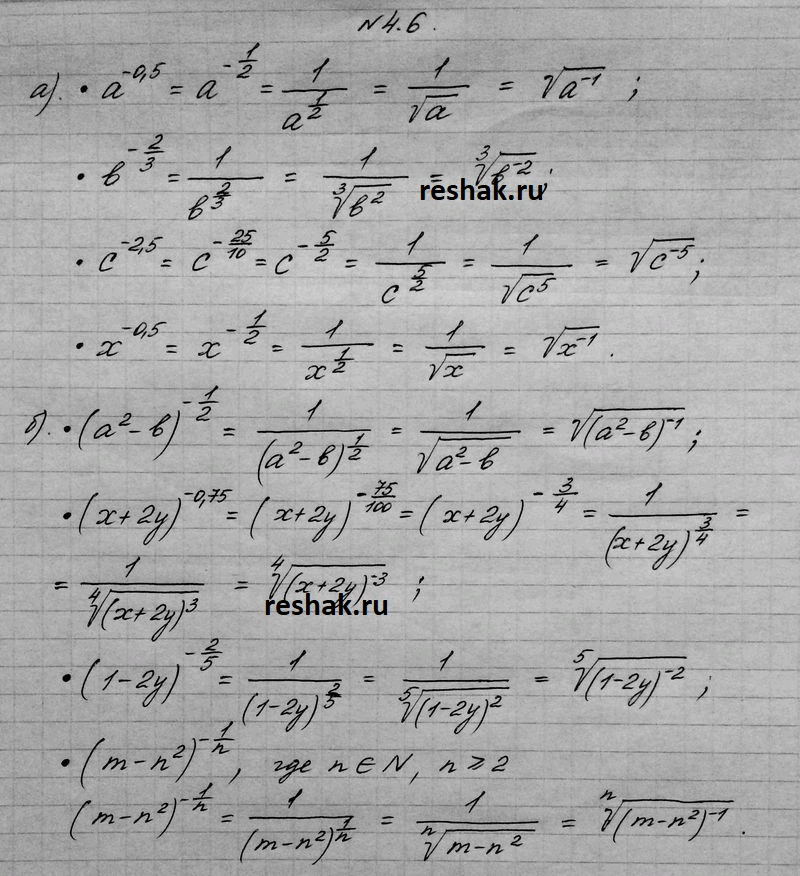 №4.6.
а). • a^{-0,5} = a^{-\frac{1}{2}} = \frac{1}{a^{\frac{1}{2}}} = \frac{1}{\sqrt{a}} = \sqrt{a^{-1}} ;
• b^{-\frac{2}{3}} = \frac{1}{b^{\frac{2}{3}}} = \frac{1}{\sqrt[3]{b^2}} = \sqrt[3]{b^{-2}} ;
reshak.ru
• c^{-2,5} = c^{-\frac{25}{10}} = c^{-\frac{5}{2}} = \frac{1}{c^{\frac{5}{2}}} = \frac{1}{\sqrt{c^5}} = \sqrt{c^{-5}} ;
• x^{-0,5} = x^{-\frac{1}{2}} = \frac{1}{x^{\frac{1}{2}}} = \frac{1}{\sqrt{x}} = \sqrt{x^{-1}} .
б). • (a^2-b)^{-\frac{1}{2}} = \frac{1}{(a^2-b)^{\frac{1}{2}}} = \frac{1}{\sqrt{a^2-b}} = \sqrt{(a^2-b)^{-1}} ;
• (x+2y)^{-0,75} = (x+2y)^{-\frac{75}{100}} = (x+2y)^{-\frac{3}{4}} = \frac{1}{(x+2y)^{\frac{3}{4}}} =
= \frac{1}{\sqrt[4]{(x+2y)^3}} = \sqrt[4]{(x+2y)^{-3}} ;
reshak.ru
• (1-2y)^{-\frac{2}{5}} = \frac{1}{(1-2y)^{\frac{2}{5}}} = \frac{1}{\sqrt[5]{(1-2y)^2}} = \sqrt[5]{(1-2y)^{-2}} ;
• (m-n^2)^{-\frac{1}{n}}, где n ∈ N, n ⩾ 2
(m-n^2)^{-\frac{1}{n}} = \frac{1}{(m-n^2)^{\frac{1}{n}}} = \frac{1}{\sqrt[n]{m-n^2}} = \sqrt[n]{(m-n^2)^{-1}} .